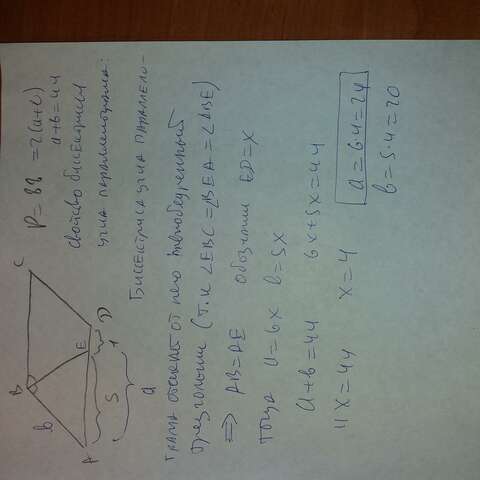 P = 88 = 2(a+b)
a+b=44
свойство биссектрисы
угла параллелограмма:
B
C
b
A
E
D
5
1
a
Биссектриса угла параллело-
грамма отсекает от него равнобедренный
треугольник (т.к ∠EBC = ∠BEA = ∠ABE)
⇒ AB=AE обозначим ED=x
тогда a=6x b=5x
a+b=44 6x+5x=44
11x=44 x=4
a=6·4=24
b=5·4=20